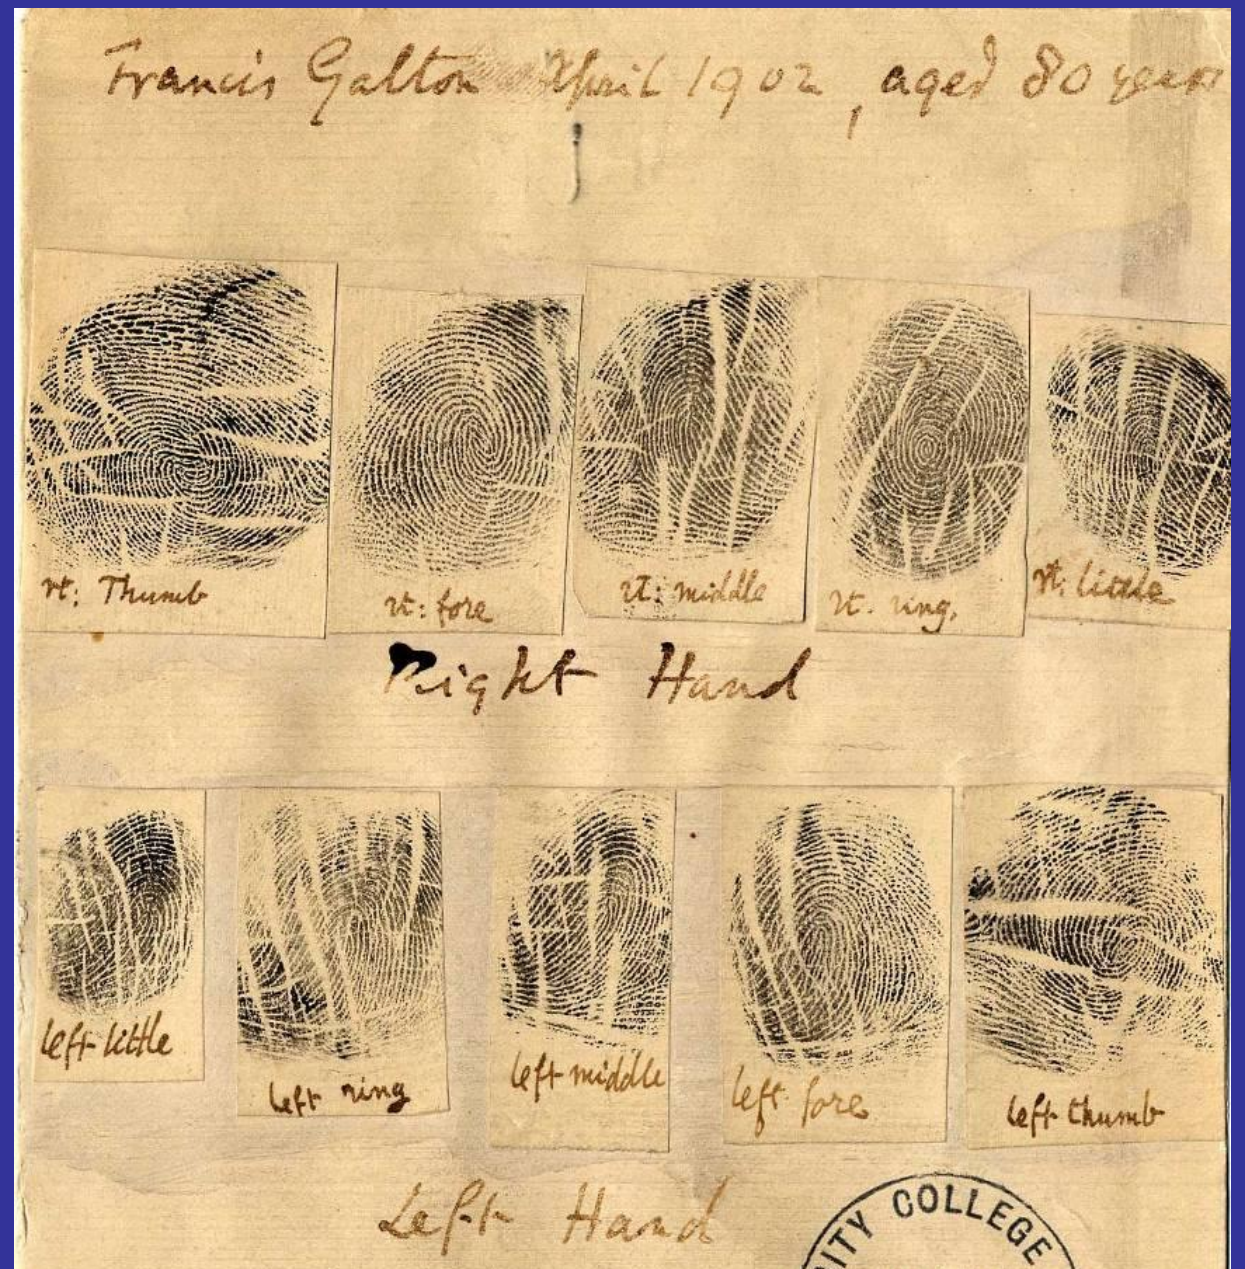 Francis Galton April 1902, aged 80 years
rt: Thumb
rt: fore
rt: middle
rt. ring.
rt: little
Right Hand
left little
left ring
left middle
left fore
left thumb
Left Hand
SITY COLLEGE